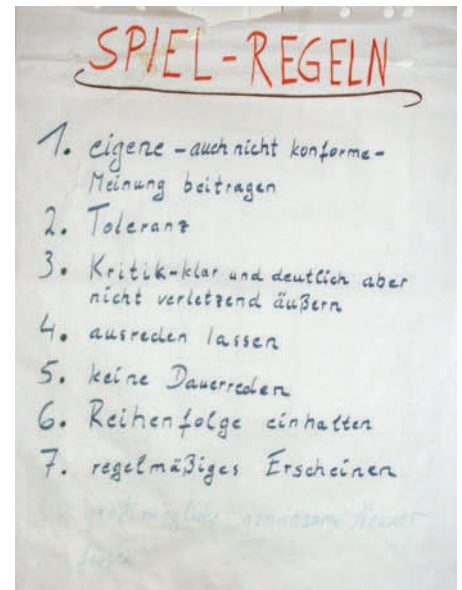 SPIEL-REGELN
1. eigene – auch nicht konforme –
Meinung beitragen
2. Toleranz
3. Kritik-klar und deutlich aber
nicht verletzend äußern
4. ausreden lassen
5. keine Dauerreden
6. Reihenfolge einhalten
7. regelmäßiges Erscheinen
gemeinsame Nenner